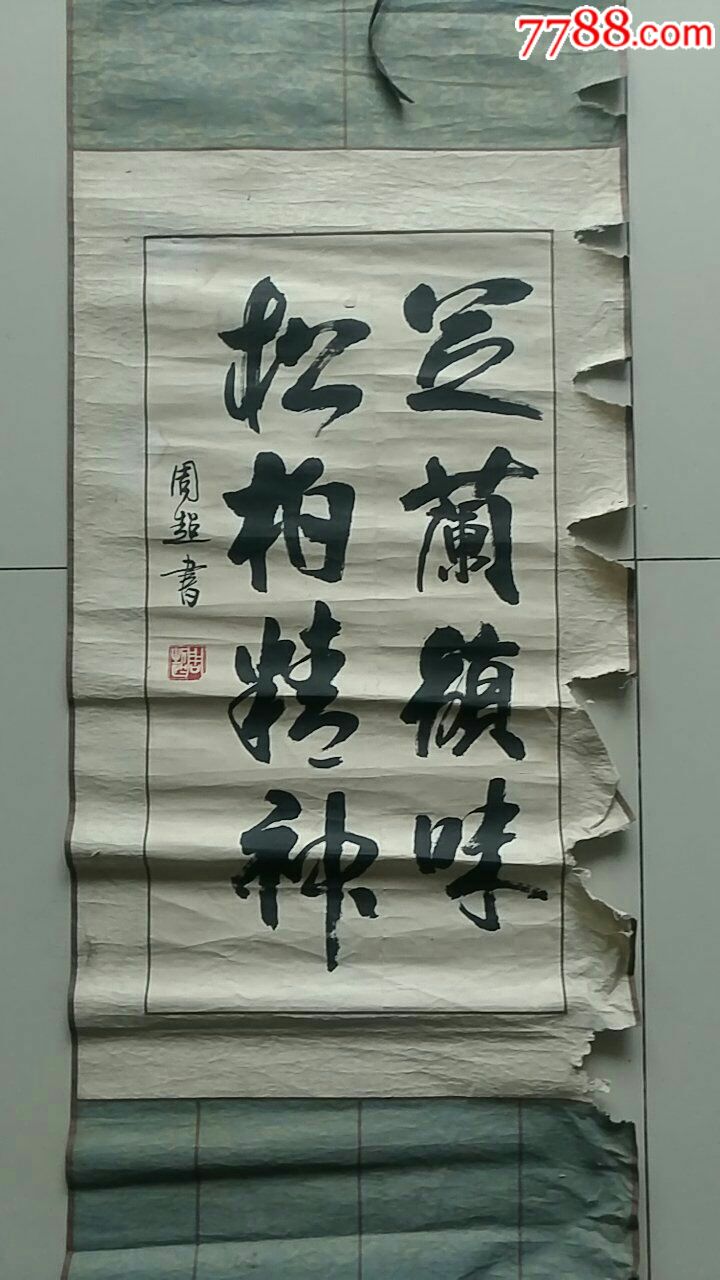 7788.com
芝蘭韻味
松柏精神
周超書